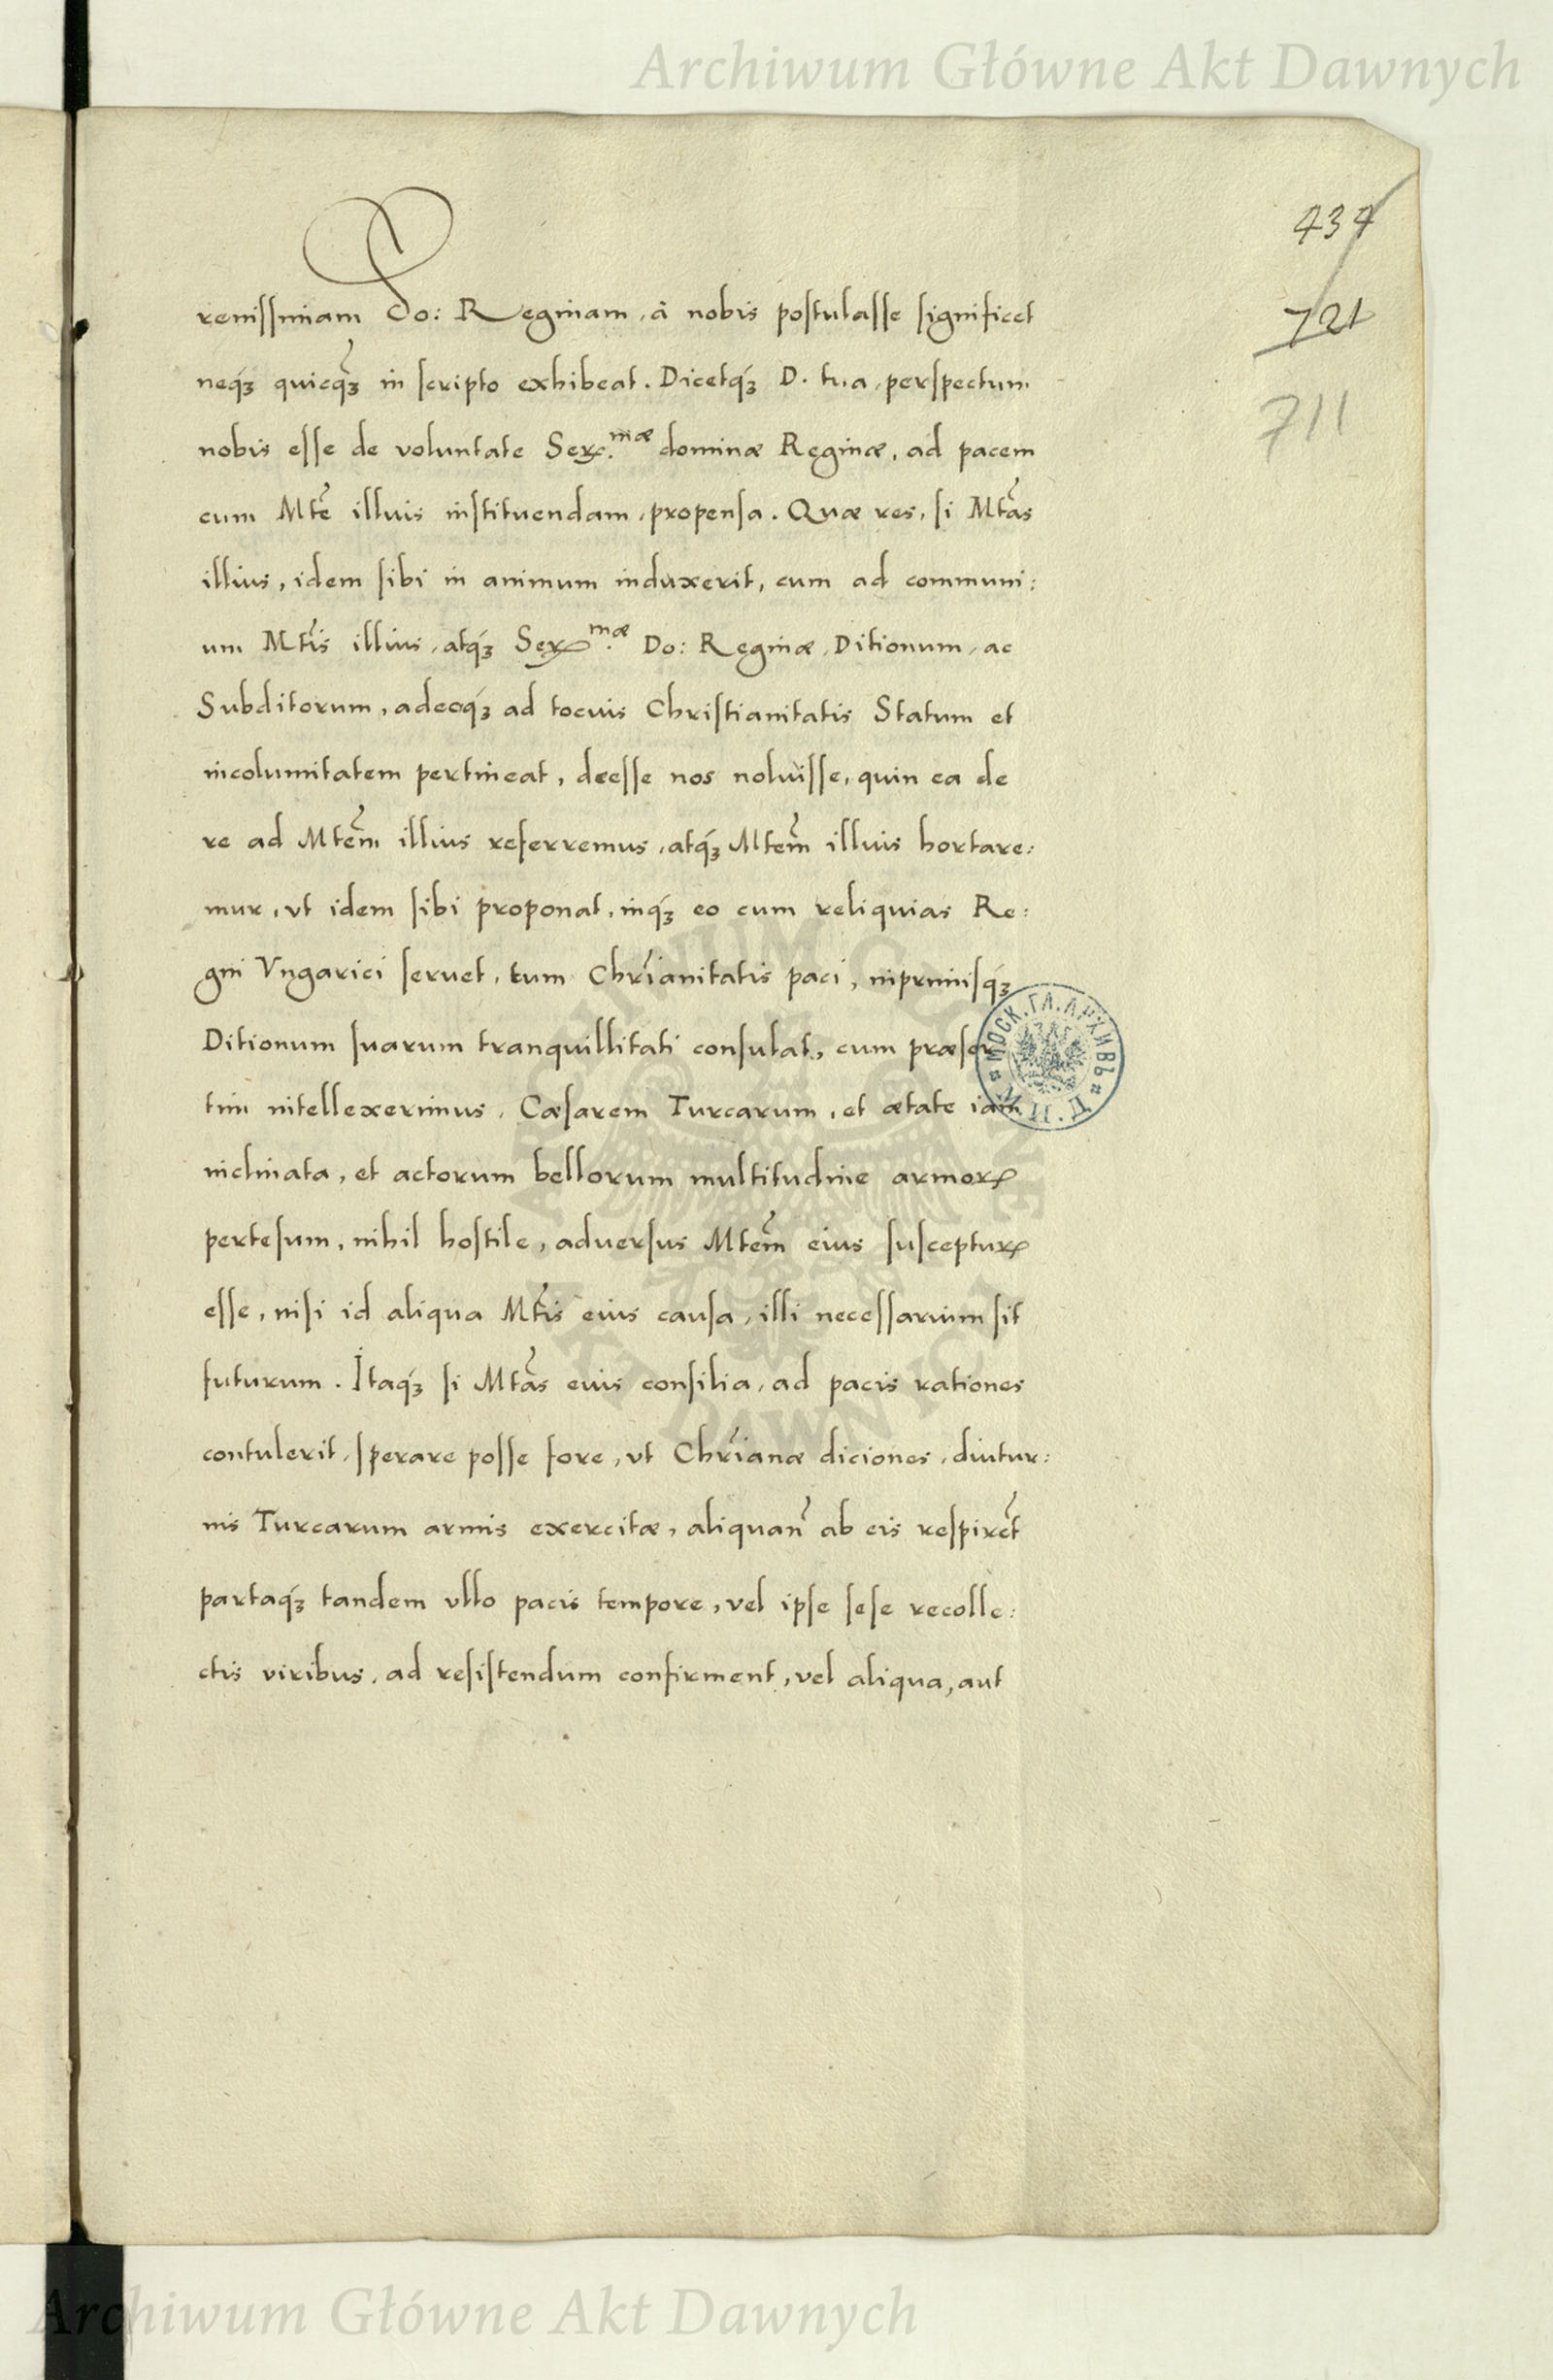 Archiwum Główne Akt Dawnych
434
721
711
renissimam Do: Reginam, à nobis postulasse significet
neq́ꝫ quicq̃ꝫ in scripto exhibeat. Dicetq́ꝫ D. tua, perspectum
nobis esse de voluntate Ser.mæ dominæ Reginæ, ad pacem
cum Mte͂ illius instituendam, propensa. Quæ res, si Mta͂s
illius, idem sibi in animum induxerit, cum ad communi:
um Mti͂s illius, atq́ꝫ Ser.mæ Do: Reginæ, Ditionum, ac
Subditorum, adeoq́ꝫ ad tocius Christianitatis Statum et
incolumitatem pertineat, deesse nos noluisse, quin ea de
re ad Mte͂m illius referremus, atq́ꝫ Mte͂m illius hortare:
mur, vt idem sibi proponat, inq́ꝫ eo cum reliquias Re:
gni Vngarici seruet, tum Chri͂anitatis paci, inprimisq́ꝫ
Ditionum suarum tranquillitati consulat, cum præser
tim intellexerimus, Cæsarem Turcarum, et ætate iam
inclinata, et actorum bellorum multitudine armoꝝ
pertesum, nihil hostile, aduersus Mte͂m eius susceptuꝝ
esse, nisi id aliqua Mti͂s eius causa, illi necessarium sit
futurum. Itaq́ꝫ si Mta͂s eius consilia, ad pacis rationes
contulerit, sperare posse fore, vt Chri͂anæ diciones, diutur:
nis Turcarum armis exercitæ, aliquan͂ ab eis respire͂t
partaq́ꝫ tandem vllo pacis tempore, vel ipse sese recolle:
ctis viribus, ad resistendum confirment, vel aliqua, aut
МОСК. ГЛ. АРХИВЪ
М. И. Д.
ARCHIWUM GŁÓWNE
AKT DAWNYCH
Archiwum Główne Akt Dawnych